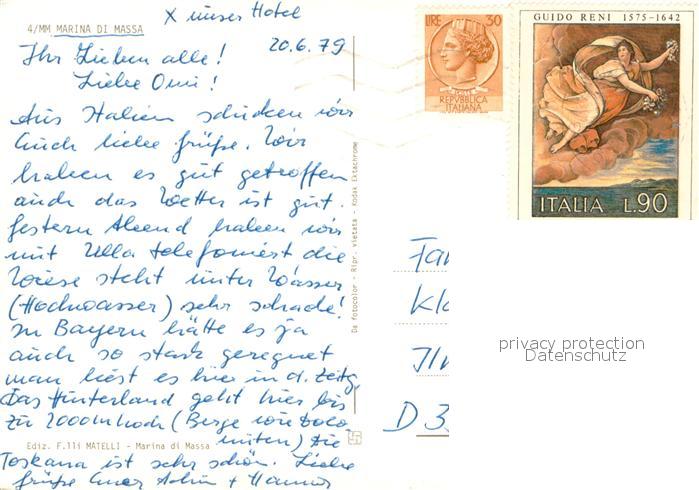 x unser Hotel
4/MM MARINA DI MASSA
20.6.79
Ihr Lieben alle!
Liebe Omi!
Aus Italien schicken wir
Euch liebe Grüße. Wir
haben es gut getroffen
auch das Wetter ist gut.
Gestern Abend haben wir
mit Ulla telefoniert die
Wiese steht unter Wasser
(Hochwasser) sehr schade!
In Bayern hätte es ja
auch so stark geregnet
man liest es hier in d. Zeitg.
Das Hinterland geht hier bis
zu 2000m hoch (Berge wie Dolo
miten) Die
Ediz. F.lli MATELLI - Marina di Massa
Toskana ist sehr schön. Liebe
Grüße Euer + Hannes
Da fotocolor - Ripr. vietata - Kodak Ektachrome
LIRE 30
REPVBBLICA
ITALIANA
GUIDO RENI 1575-1642
ITALIA L.90
Fam
Kl
D 3
privacy protection
Datenschutz